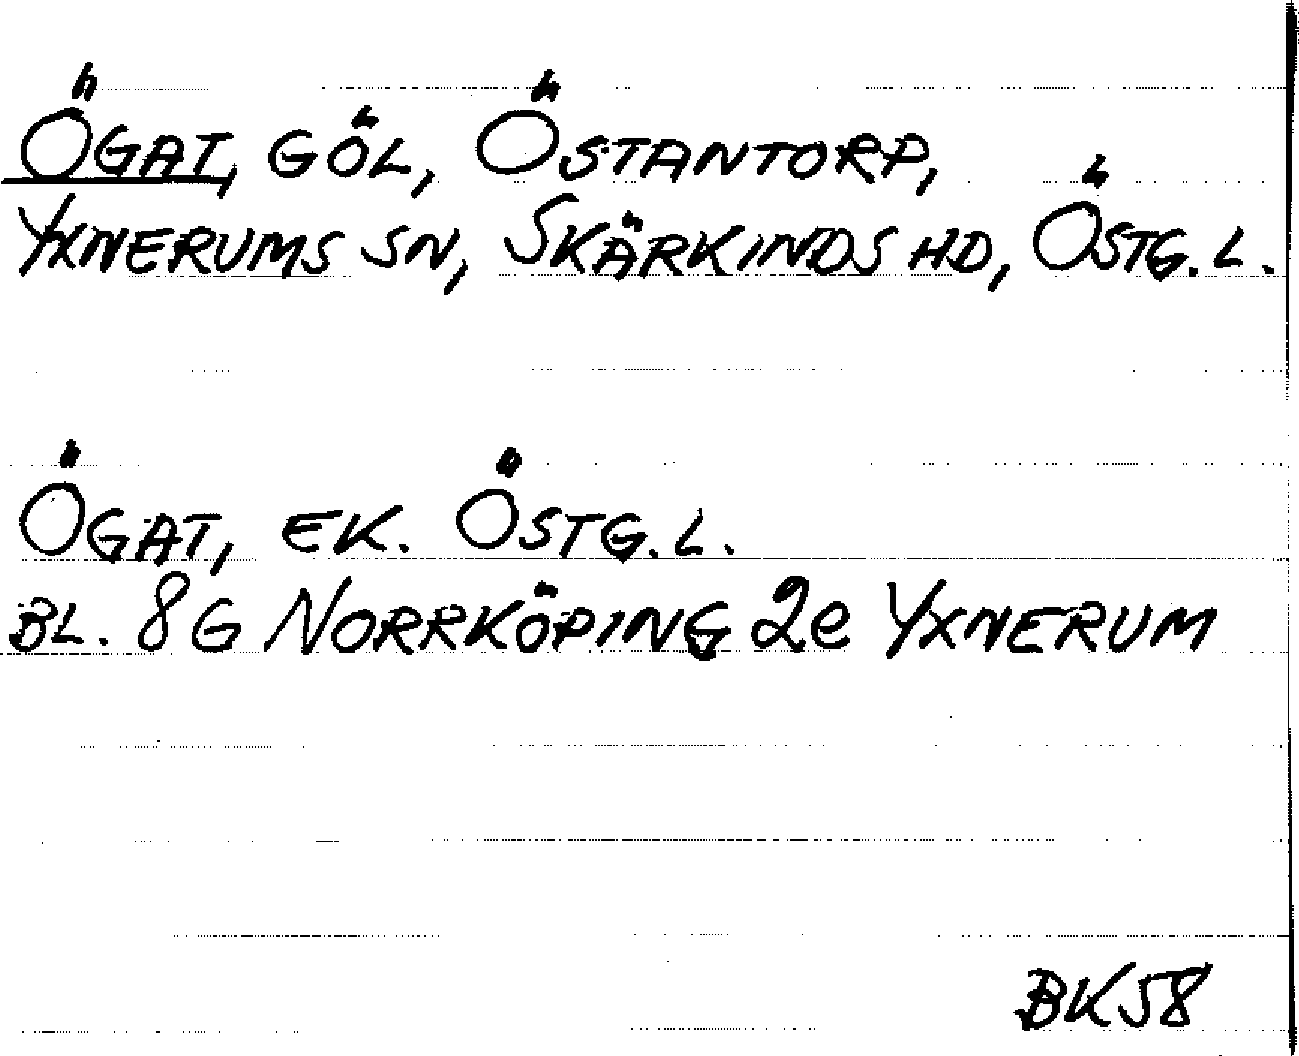 Ögat, göl, Östantorp,
Yxnerums sn, Skärkinds hd, Östg. l.
Ögat, ek. Östg. l.
Bl. 8G Norrköping 2e Yxnerum
BK58